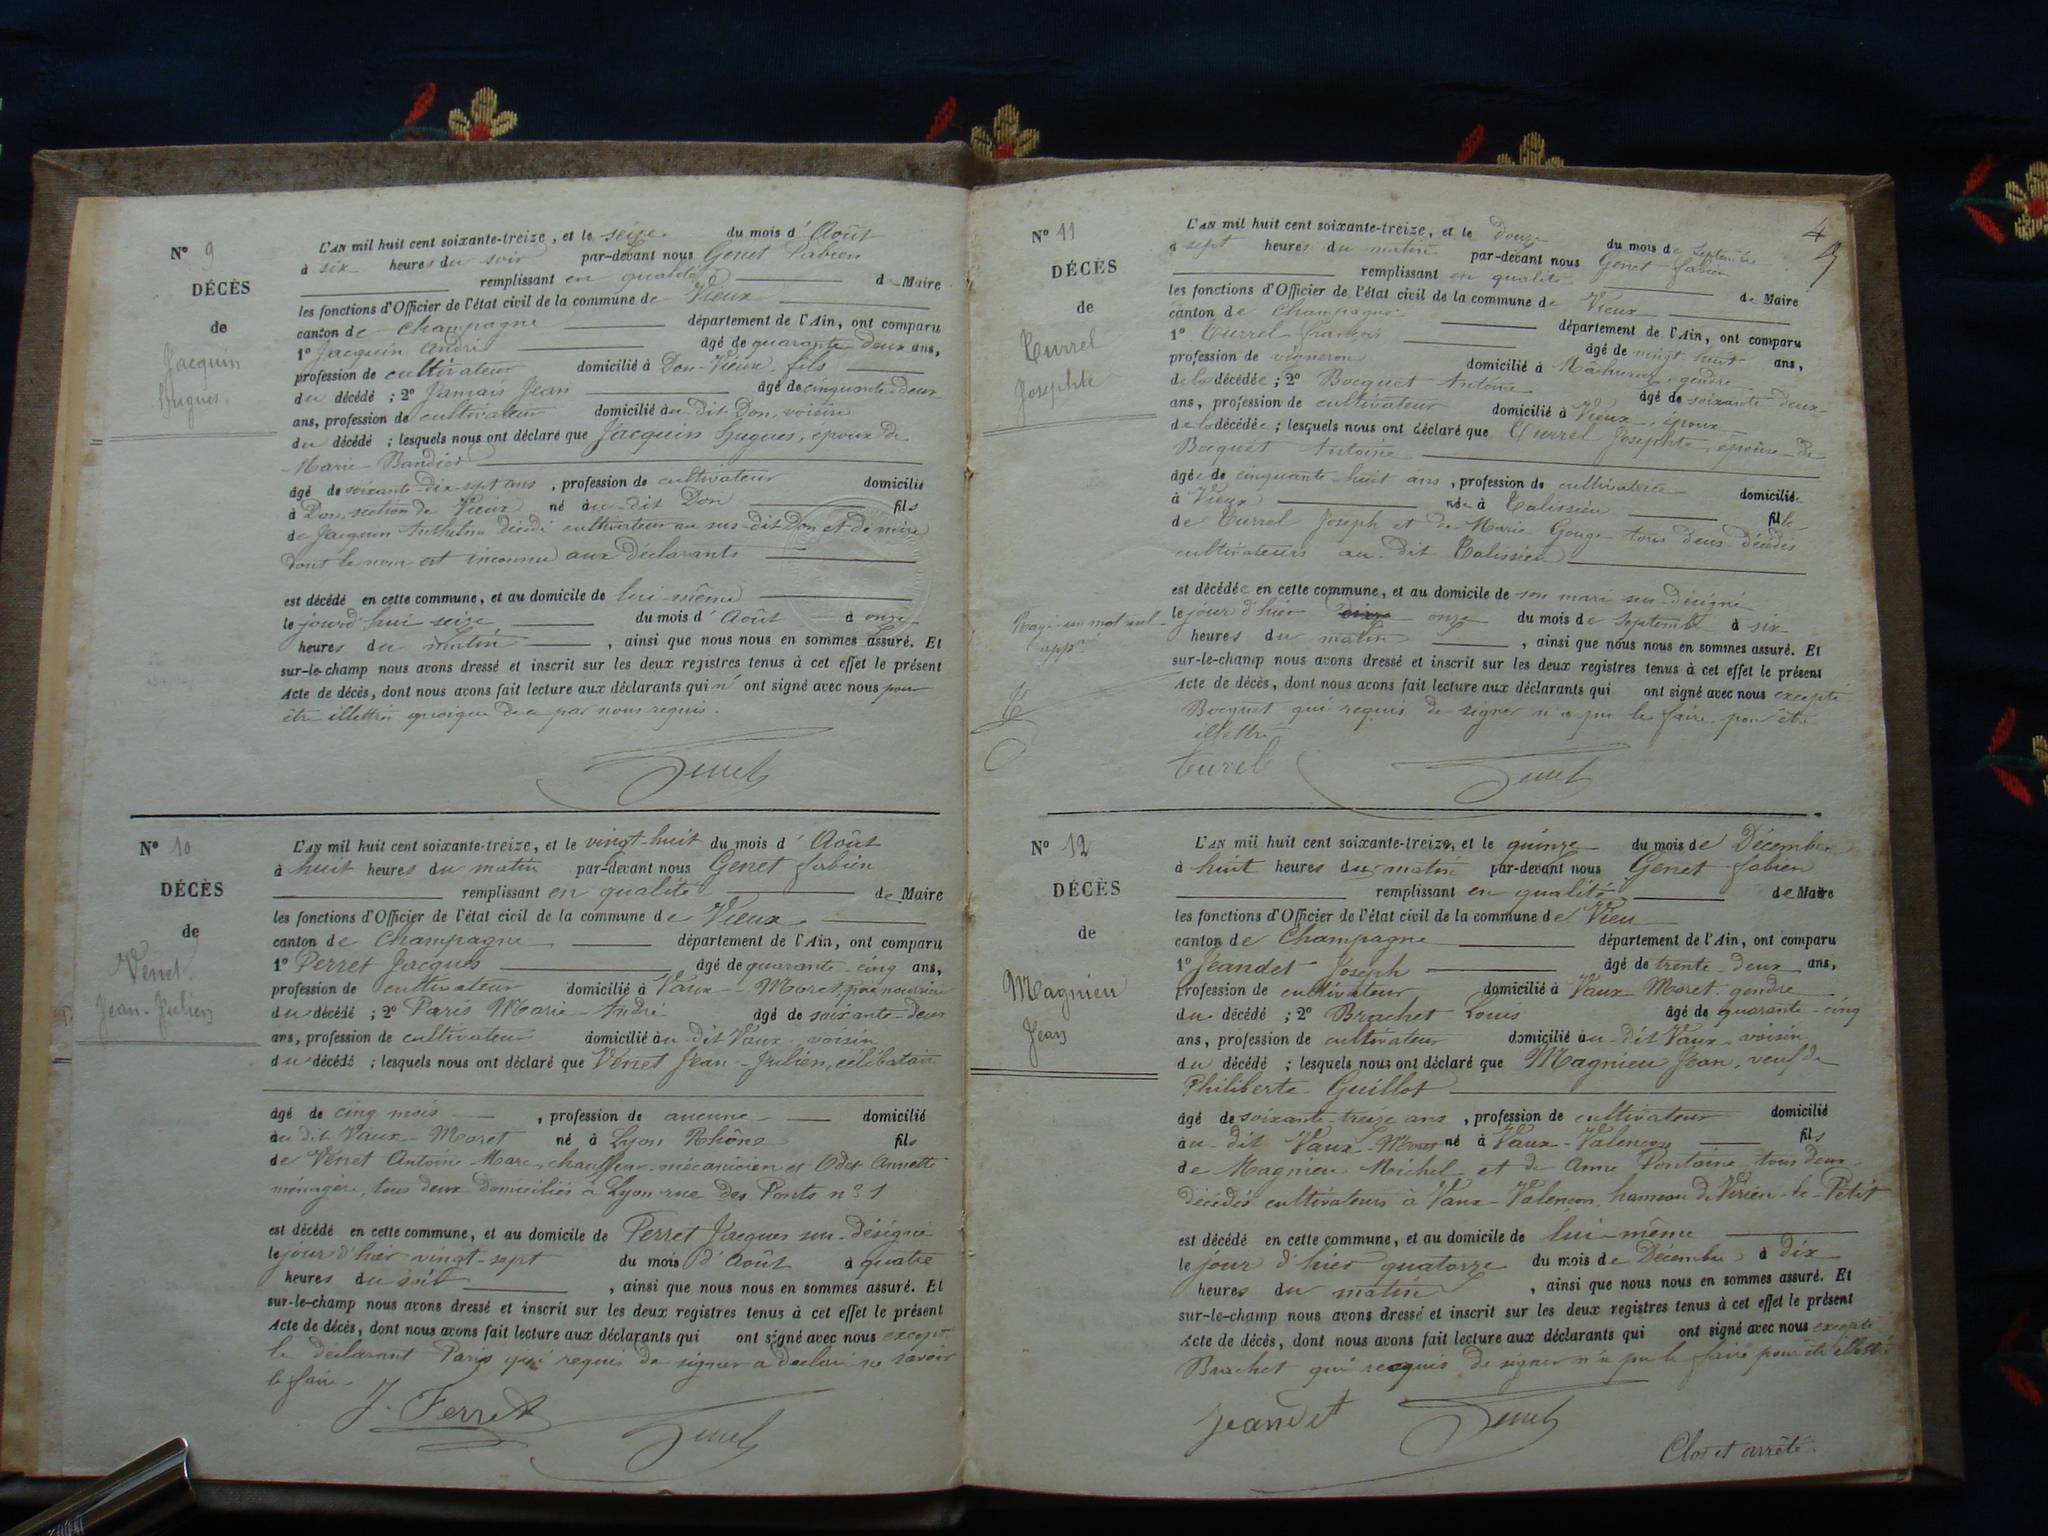 Nº 9
DÉCÈS
de
Jacquin
Hugues.
L'AN mil huit cent soixante-treize, et le seize du mois d'Août
à six heures du soir par-devant nous Genet Fabien
remplissant en qualité de Maire
les fonctions d'Officier de l'état civil de la commune de Vieux
canton de Champagne département de l'Ain, ont comparu
1º Jacquin André âgé de quarante deux ans,
profession de cultivateur domicilié à Don-Vieux, fils
du décédé ; 2º Jamais Jean âgé de cinquante-deux
ans, profession de cultivateur domicilié au dit Don, voisin
du décédé ; lesquels nous ont déclaré que Jacquin Hugues, époux de
Marie Bandier
âgé de soixante-dix-sept ans, profession de cultivateur domicilié
à Don, section de Vieux né au dit Don fils
de Jacquin Anthelme décédé cultivateur au sus-dit Don et de mère
dont le nom est inconnu aux déclarants
est décédé en cette commune, et au domicile de lui-même
le jourd'hui seize du mois d'Août à onze
heures du matin, ainsi que nous nous en sommes assuré. Et
sur-le-champ nous avons dressé et inscrit sur les deux registres tenus à cet effet le présent
Acte de décès, dont nous avons fait lecture aux déclarants qui n'ont signé avec nous pour
être illettrés quoique de ce par nous requis.
Genet
Nº 10
DÉCÈS
de
Venet
Jean-Julien
L'AN mil huit cent soixante-treize, et le vingt-huit du mois d'Août
à huit heures du matin par-devant nous Genet Fabien
remplissant en qualité de Maire
les fonctions d'Officier de l'état civil de la commune de Vieux
canton de Champagne département de l'Ain, ont comparu
1º Perret Jacques âgé de quarante-cinq ans,
profession de cultivateur domicilié à Vaux-Moret, père nourricier
du décédé ; 2º Paris Marie-André âgé de soixante-deux
ans, profession de cultivateur domicilié au dit Vaux, voisin
du décédé ; lesquels nous ont déclaré que Venet Jean-Julien, célibataire
âgé de cinq mois, profession de aucune domicilié
au dit Vaux-Moret né à Lyon Rhône fils
de Venet Antoine-Marc, chauffeur-mécanicien et Odet Annette
ménagère, tous deux domiciliés à Lyon rue des Ponts nº 1
est décédé en cette commune, et au domicile de Perret Jacques sus-désigné
le jour d'hier vingt-sept du mois d'Août à quatre
heures du soir, ainsi que nous nous en sommes assuré. Et
sur-le-champ nous avons dressé et inscrit sur les deux registres tenus à cet effet le présent
Acte de décès, dont nous avons fait lecture aux déclarants qui ont signé avec nous excepté
le déclarant Paris qui requis de signer a déclaré ne savoir
le faire.
J. Ferret
Genet
4
Nº 11
DÉCÈS
de
Turrel
Josephte
L'AN mil huit cent soixante-treize, et le douze du mois de Septembre
à sept heures du matin par-devant nous Genet Fabien
remplissant en qualité de Maire
les fonctions d'Officier de l'état civil de la commune de Vieux
canton de Champagne département de l'Ain, ont comparu
1º Turrel François âgé de vingt huit ans,
profession de vigneron domicilié à Mâchuraz, gendre
de la décédée ; 2º Bocquet Antoine âgé de soixante deux
ans, profession de cultivateur domicilié à Vieux, époux
de la décédée ; lesquels nous ont déclaré que Turrel Josephte, épouse de
Bocquet Antoine
âgée de cinquante-huit ans, profession de cultivatrice domiciliée
à Vieux née à Talissieu fille
de Turrel Joseph et de Marie Gouge tous deux décédés
cultivateurs au dit Talissieu
est décédée en cette commune, et au domicile de son mari sus-désigné
le jour d'hier onze du mois de Septembre à six
heures du matin, ainsi que nous nous en sommes assuré. Et
sur-le-champ nous avons dressé et inscrit sur les deux registres tenus à cet effet le présent
Acte de décès, dont nous avons fait lecture aux déclarants qui ont signé avec nous excepté
Bocquet qui requis de signer n'a pu le faire pour être
illettré
Rayé un mot nul
appé
Turel
Genet
Nº 12
DÉCÈS
de
Magnieu
Jean
L'AN mil huit cent soixante-treize, et le quinze du mois de Décembre
à huit heures du matin par-devant nous Genet Fabien
remplissant en qualité de Maire
les fonctions d'Officier de l'état civil de la commune de Vieu
canton de Champagne département de l'Ain, ont comparu
1º Jeandet Joseph âgé de trente-deux ans,
profession de cultivateur domicilié à Vaux Moret, gendre
du décédé ; 2º Brachet Louis âgé de quarante-cinq
ans, profession de cultivateur domicilié au dit Vaux, voisin
du décédé ; lesquels nous ont déclaré que Magnieu Jean, veuf de
Philiberte Guillot
âgé de soixante-treize ans, profession de cultivateur domicilié
au dit Vaux-Moret né à Vaux-Valençon fils
de Magnieu Michel et de Anne Pontaine, tous deux
décédés cultivateurs à Vaux-Valençon, hameau de Virieu-le-Petit
est décédé en cette commune, et au domicile de lui-même
le jour d'hier quatorze du mois de Décembre à dix
heures du matin, ainsi que nous nous en sommes assuré. Et
sur-le-champ nous avons dressé et inscrit sur les deux registres tenus à cet effet le présent
Acte de décès, dont nous avons fait lecture aux déclarants qui ont signé avec nous excepté
Brachet qui requis de signer n'a pu le faire pour être illettré
Jeandet
Genet
Clos et arrêté